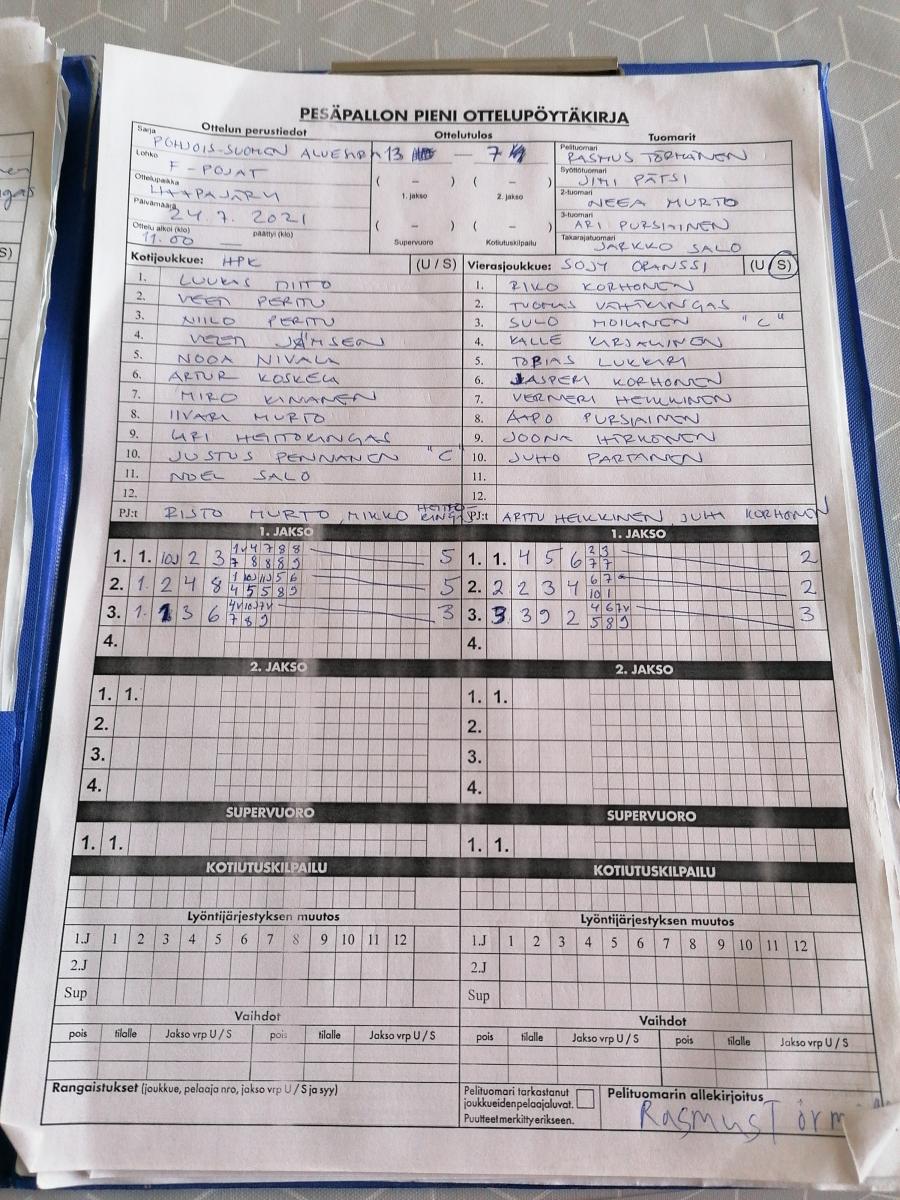 PESÄPALLON PIENI OTTELUPÖYTÄKIRJA
Ottelun perustiedot
Ottelutulos
Tuomarit
Sarja
POHJOIS-SUOMEN
Lohko
F - POJAT
Ottelupaikka
HAAPAJÄRVI
Päivämäärä
24.7. 2021
Ottelu alkoi (klo) päättyi (klo)
11.00 —
13 — 7
( – ) ( – )
1. jakso 2. jakso
( – ) ( – )
Supervuoro Kotiutuskilpailu
Pelituomari
RASMUS TÖRMÄNEN
Syöttötuomari
JIMI PÄTSI
2-tuomari
NEEA MURTO
3-tuomari
ARI PURSIAINEN
Takarajatuomari
JARKKO SALO
Kotijoukkue: HPK (U / S)
1. LUUKAS NIITO
2. VEETI PERTTU
3. NIILO PERTTU
4. VEETI JÄMSEN
5. NOOA NIVALA
6. ARTUR KOSKELA
7. MIRO KINANEN
8. IIVARI MURTO
9. HEITTOKANGAS
10. JUSTUS PENNANEN "C"
11. NOEL SALO
12.
PJ:t RISTO MURTO, MIKKO HEITTO-
KANGAS
Vierasjoukkue: SOJY ORANSSI (U / S)
1. RIKO KORHONEN
2. TUOMAS VÄHÄKANGAS
3. SULO MOILANEN "C"
4. KALLE KARJALAINEN
5. TOBIAS LUKKARI
6. JASPERI KORHONEN
7. VERNERI HEIKKINEN
8. AAPO PURSIAINEN
9. JOONA HÄRKÖNEN
10. JUHO PARTANEN
11.
12.
PJ:t ARTTU HEIKKINEN, JUHA KORHONEN
1. JAKSO
1. 1. 10J 2 3 1V 4 7 8 8 5
7 8 8 8 9
2. 1. 2 4 8 1 10J 11J 5 6 5
4 5 5 8 9
3. 1. 1 3 6 4V 10J 7V 3
7 8 9
4.
1. JAKSO
1. 1. 4 5 6 2 3 2
7 7
2. 2 2 3 4 6 7 2
10 1
3. 3 3 9 2 4 6 7V 3
5 8 9
4.
2. JAKSO
1. 1.
2.
3.
4.
2. JAKSO
1. 1.
2.
3.
4.
SUPERVUORO
1. 1.
SUPERVUORO
1. 1.
KOTIUTUSKILPAILU
KOTIUTUSKILPAILU
Lyöntijärjestyksen muutos
1.J 1 2 3 4 5 6 7 8 9 10 11 12
2.J
Sup
Lyöntijärjestyksen muutos
1.J 1 2 3 4 5 6 7 8 9 10 11 12
2.J
Sup
Vaihdot
pois tilalle Jakso vrp U / S pois tilalle Jakso vrp U / S
Vaihdot
pois tilalle Jakso vrp U / S pois tilalle Jakso vrp U / S
Rangaistukset (joukkue, pelaaja nro, jakso vrp U / S ja syy)
Pelituomari tarkastanut
joukkueiden pelaajaluvat.
Puutteet merkitty erikseen.
Pelituomarin allekirjoitus
Rasmus Törm